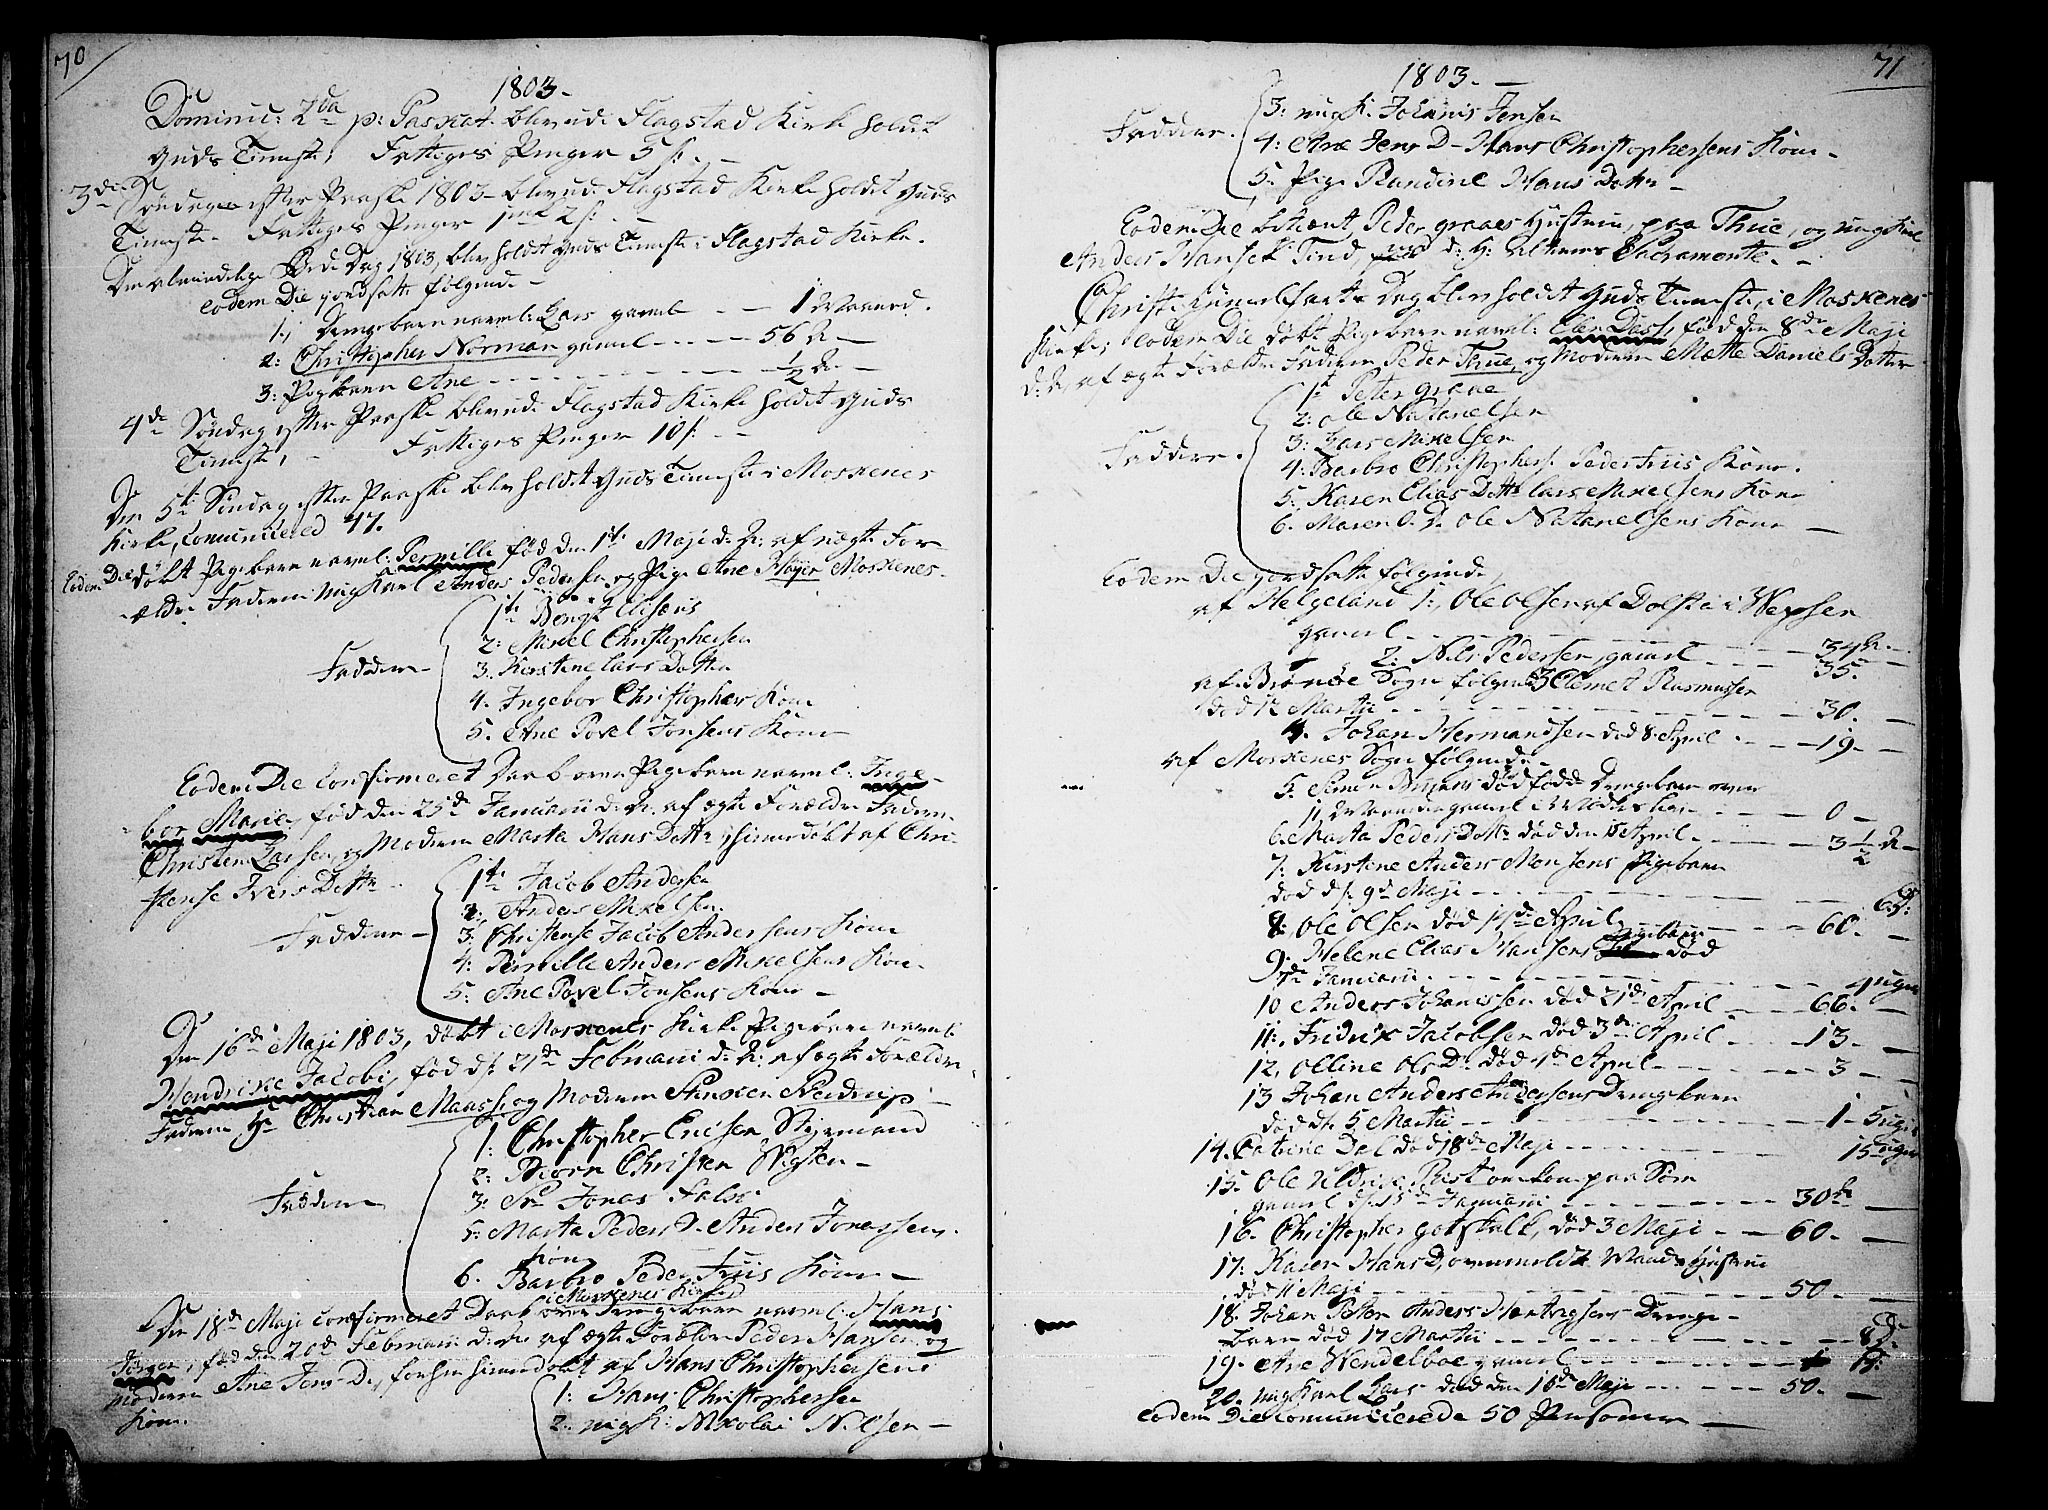 70
1803.
Dominic: 2da p: Paskat. blev udi Flagstad Kirke holdet
Guds Tieneste, Fattiges Penger 5 s:
3die Søndag efter Paaske 1803 blev udi Flagstad Kirke holdet Guds
Tieneste. Fattiges Penger 1 mk 2 s:
Den almindelige Bede Dag 1803, blev holdet Guds Tieneste i Flagstad Kirke.
eodem Die jordfæste følgende
1., Drengebarn navnl: Lars gaml - - 1 Maaned.
2: Christopher Norman gaml - - 56 Aar
3: Pigebarn Ane - - 1/2 Aar
4de Søndag efter Paaske blev udi Flagstad Kirke holdet Guds
Tieneste, Fattiges Penger 10 s:
Den 5te Søndag efter Paaske blev holdet Guds Tieneste i Moskenes
Kirke, Comunicered 47.
Eodem Die døbt Pigebarn navnl: Pernille fød den 1te Maji d: A: af uægte For-
ældre Faderen ungKarl Anders Pedersen og Pige Ane Høyer Moskenes.
Faddere
1te Bengt
2: Mikel Christophersen
3. Kirstine Lars Datter
4. Ingebor Christophers Kone
5. Ane Povel Jonsens Kone
Eodem Die Confirmeret Daab over Pigebarn navnl: Inge-
bor Marie, fød den 25de Januarii d: A. af ægte Forældre Faderen
Christen Larsen og Moderen Marta Hans Datter, hiemedøbt af Chri-
stense Ivers Datter
Faddere
1te Jacob Andersen
2: Anders Mikelsen
3: Christense Jacob Andersens Kone
4: Pernille Anders Mikelsens Kone
5: Ane Povel Jonsens Kone
Den 16de Maji 1803, døbt i Moskenes Kirke Pigebarn navnl:
Hendrikke Jacobi, fød d: 21de Februarii d: A: af ægte Forældre
Faderen Hr Christian Maass, og Moderen Stinken Neidrup
Faddere
1: Christopher Ericsen Styrmand
2: Biørn Christen Sigsten
3: Sr Jonas Falk
5: Marta Peders D. Anders Jonassens
Kone
6. Barbro Peder Friis Kone
i Moskenes Kirke
Den 18de Maji Confirmeret Daab over Drengebarn navnl: Hans
fød den 20de Februarii d: A: af ægte Forældre Peder Hansen og
Moderen Ane Jens D., forhen hiemedøbt af Hans Christophersens
Kone.
1: Hans Christophersen
2. ungK: Nikolai Nilsen
71
1803.
Faddere.
3: ungK. Johanis Jensen
4: Ane Jens D Hans Christophersens Kone
5. Pige Randine Hans Datter
Eodem Die betient Peder Graaes Hustrue, paa Thue, og ungKarl
Anders Hansen Tind, med d: H: Alterens Sacramente.
Christi Himmelfarts Dag blev holdet Guds Tieneste, i Moskenes
Kirke, Eodem Die døbt Pigebarn navnl: Elen Dass, fød den 8de Maji
d: A, af ægte Forældre Faderen Peder Thue, og Moderen Mette Daniels Datter
Faddere.
1te Peter Graae
2: Ole Natanelsen
3: Lars Mikelsen
4: Barbro Christophers: Peder Friis Kone.
5. Karen Elias Datter Lars Mikelsens Kone
6. Maren O. D. Ole Natanelsens Kone
Eodem Die jordfæste følgende,
af Helgeland 1:, Ole Olsen af Dolste i Wepsen
gaml - - 34 Aar
2: Nils Pedersen, gaml - - 35.
af Brønøe Sogn følgende 3 Clemet Rasmussen
død 12 Martii - - 30.
4. Johan Hermandsen død 8. April - - 19
af Moskenes Sogn følgende
5. Simon dødfødt Drengebarn over
- - 0
6. Marta Peders Datter død den April - - 3 1/2 A
7: Kirstine Anders Monsens Pigebarn
død d: 9de Maji - - 6 D:
8: Ole Olsen død 14de April - - 60.
9. Helene Elias Hansens Pigebarn død
7de Januarii - - 4 uger
10 Anders Johannessen død 21de April - - 66.
11: Fridrik Jacobsen død 3de April - - 13.
12, Olline Ols D: død 4de April - - 3
13 Johan Anders Andersens Drengebarn
død d: 5 Martii - - 1 - 5 uger
14. Catrine Dal død 18de Maji - - 15 uger
15. Ole Uldrik Rist omkom paa Søen
gaml d: 15de Januarii - - 30 Aar
16. Christopher Gotskalk, død 3 Maji - - 60.
17: Karen Hans D, ovenmeldte Mands Hustrue
død 11 Maji - - 50
18. Johan Petter Anders Hartvigsens Drenge-
barn død 17 Martii - - 8 D:
19. Ane Wendelboe gaml - - 19:
20. ungKarl Lars død den 10de Maji - - 50.
Eodem Die Comunicerede 50 Personer